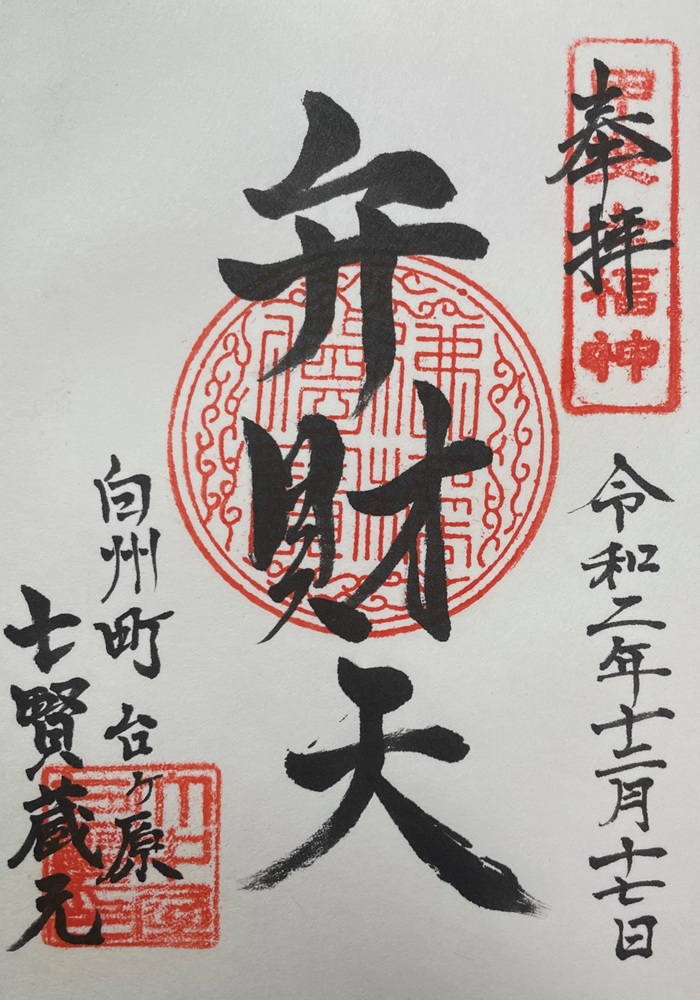 奉拝
福神
令和二年十二月十七日
弁財天
白州町 台ヶ原
七賢蔵元